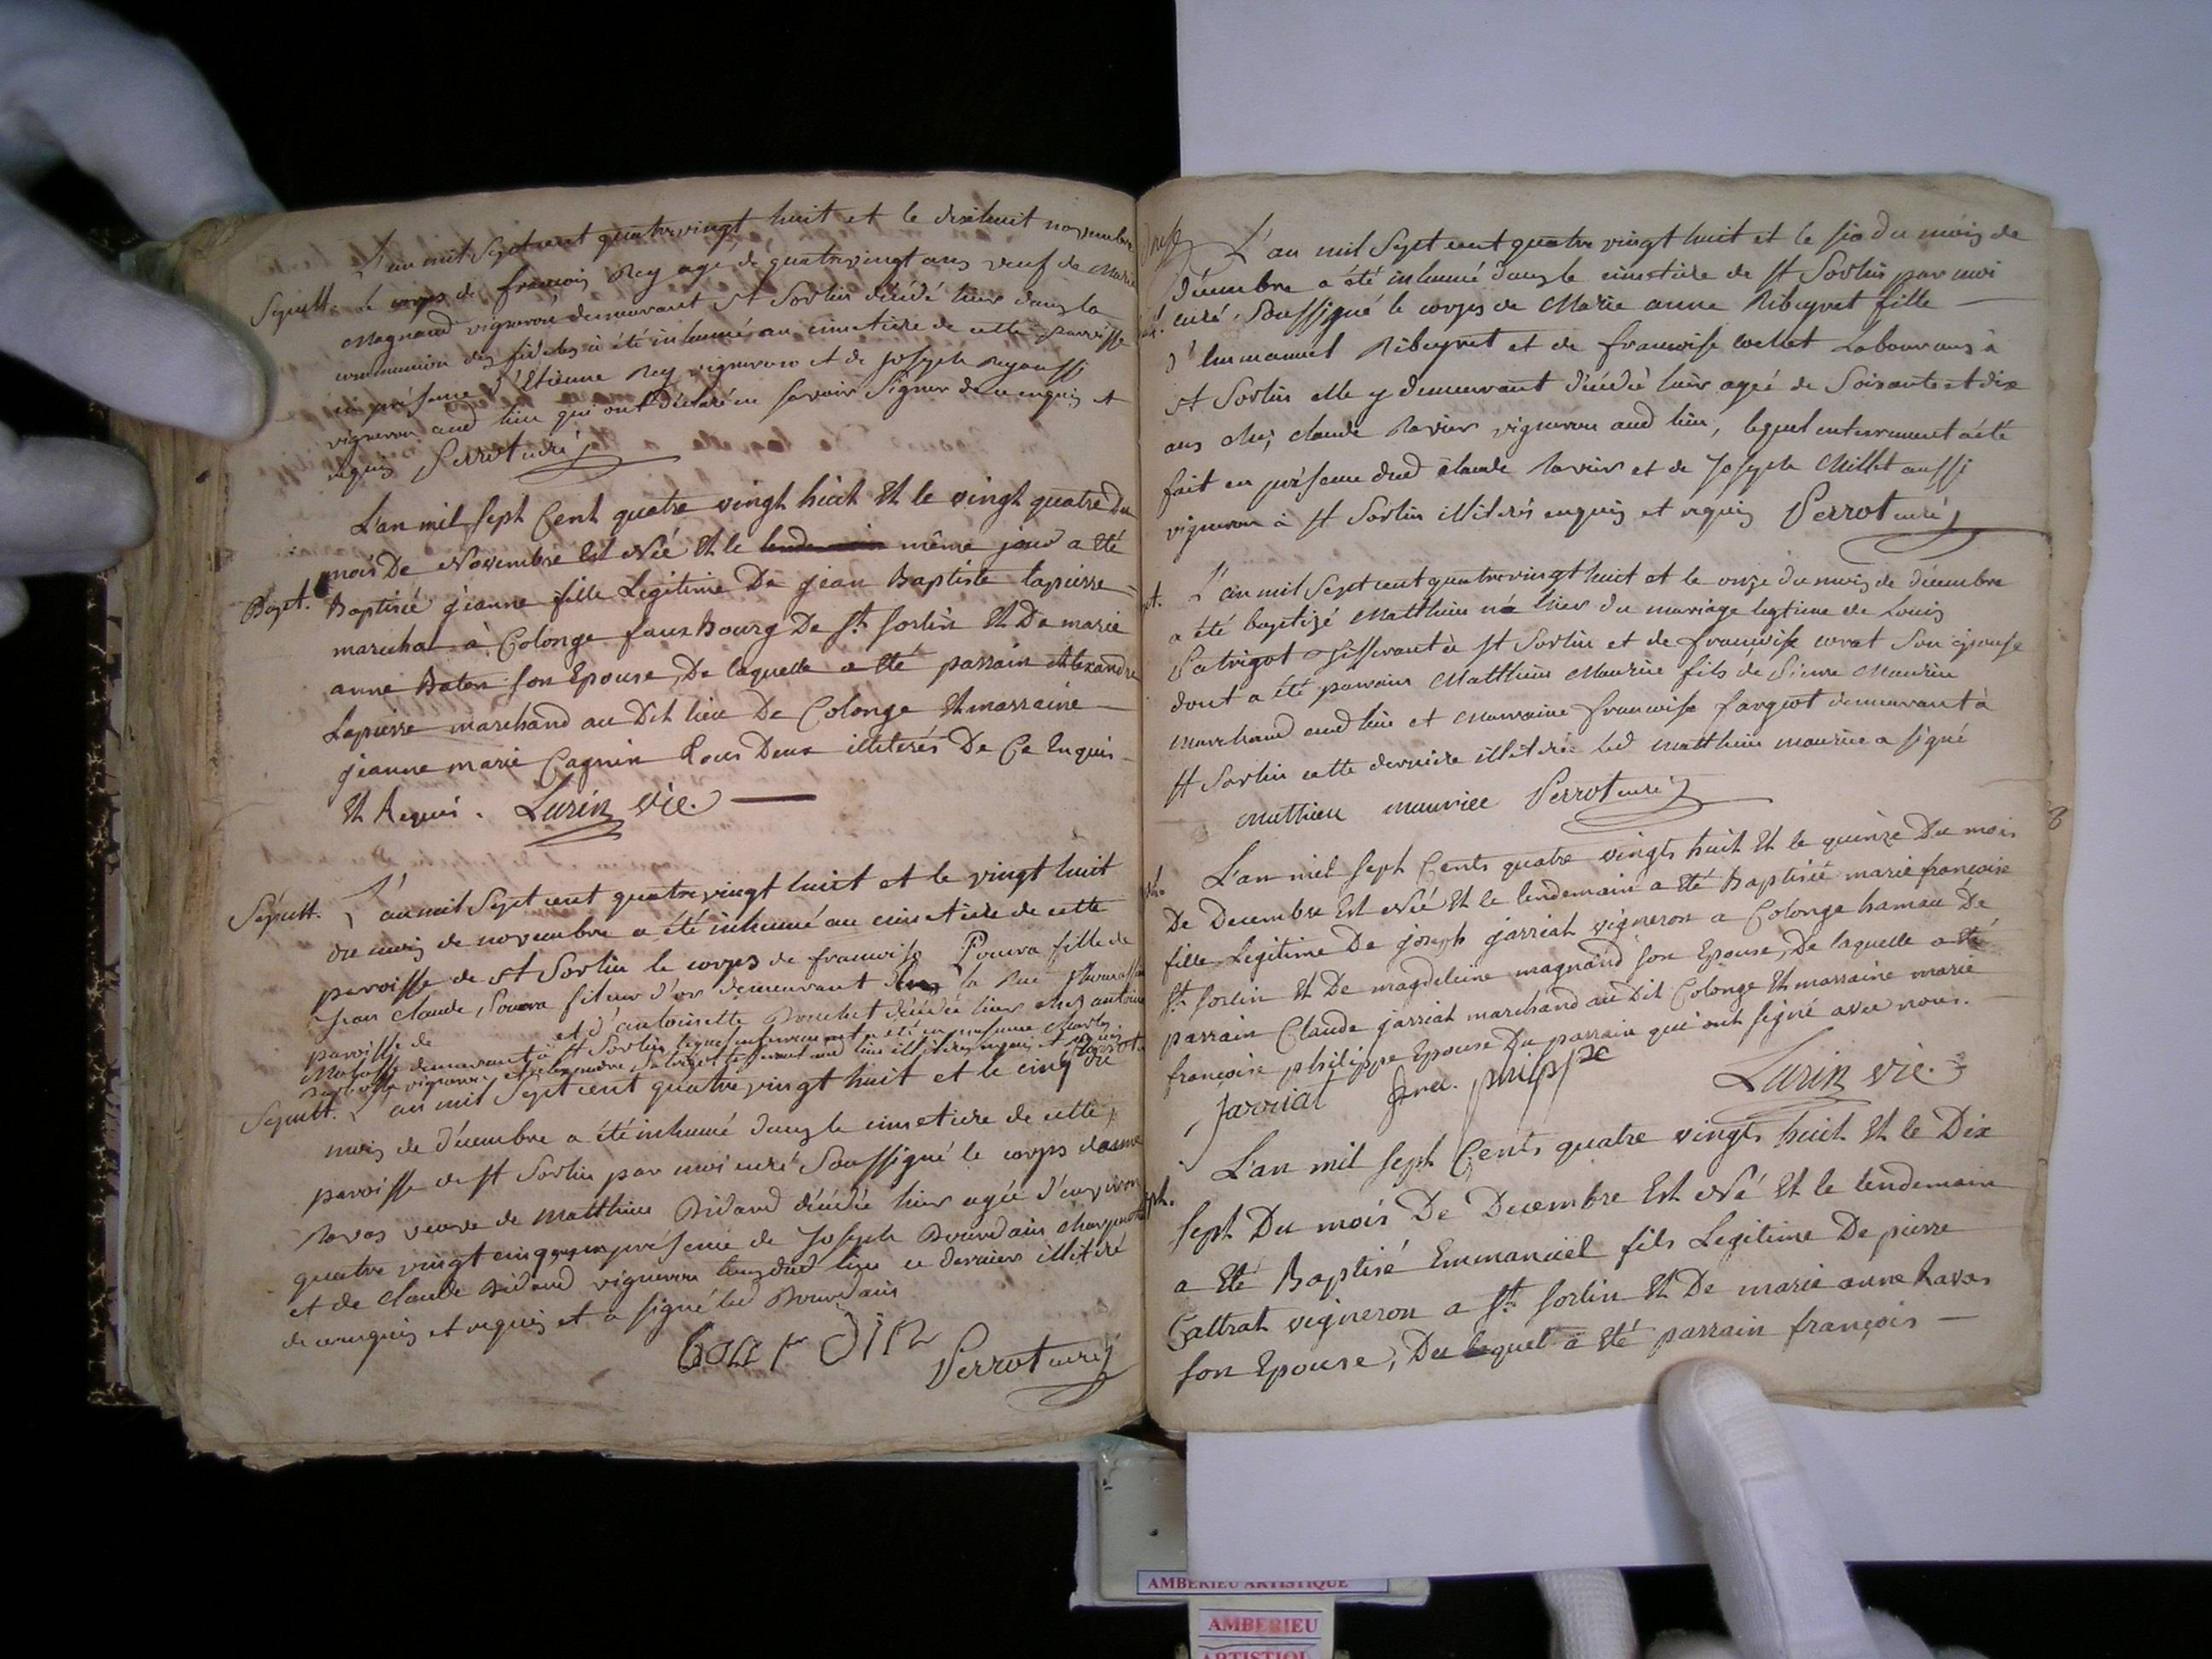 L'an mil Sept cent quatre vingt huit et le dixhuit novembre
Sepult. Le corps de francois Rey agé de quatrevingt ans veuf de Marie
Magnaud vigneron demeurant a St Sorlin décédé hier dans la
communion des fideles a été inhumé au cimetiere de cette paroisse
en présence d'Etienne Rey vigneron et de Joseph Rey aussi
vigneron aud lieu qui ont déclaré ne savoir signer de ce enquis et
requis Perrot curé
L'an mil sept Cent quatre vingt huit Et le vingt quatre du
mois De Novembre Est Née Et le même jour a Eté
Bapt. Baptisée jeanne fille Legitime De jean Baptiste lapierre
marechal à Colonge faux bourg De St. Sorlin Et De marie
anne Baton son Epouse, De laquelle a Eté parrain Alexandre
Lapierre marchand au Dit lieu De Colonge Et marraine
jeanne marie Cagnin tous Deux illiterés De Ce Enquis
Et Requis. Lurin vic.
Sépult. L'an mil Sept cent quatre vingt huit et le vingt huit
du mois de novembre a été inhumé au cimetiere de cette
paroisse de St Sorlin le corps de francoise Poura fille de
Jean claude Poura fileur d'or demeurant dans la Rue
paroisse de et d'antoinette Bouchet décédée hier chez antoine
demeurant a St Sorlin lequel enterrement a été en présence Charles
vigneron et aud lieu illiterés enquis et requis Perrot
Sepult. L'an mil Sept cent quatre vingt huit et le cinq du
mois de décembre a été inhumé dans le cimetiere de cette
paroisse de St Sorlin par moi curé Soussigné le corps danne
Ravas veuve de Matthieu Bidaud décédée hier agée d'environ
quatre vingt cinq ans en présence de Joseph Bourdain
et de claude Bidaud vigneron tous dud lieu ce dernier illitéré
de ce enquis et requis et a signé led Bourdain
bourdin
Perrot curé
L'an mil Sept cent quatre vingt huit et le six du mois de
décembre a été inhumé dans le cimetiere de St Sorlin par moi
curé Soussigné le corps de Marie anne Ribeyret fille
d'Emmanuel Ribeyret et de francoise collet Laboureurs à
St Sorlin elle y demeurant décédée hier agée de Soixante et dix
ans chez claude Ravier vigneron aud lieu, lequel enterrement a été
fait en présence dud claude Ravier et de Joseph Millet aussi
vigneron à St Sorlin illiterés enquis et requis Perrot curé
L'an mil Sept cent quatre vingt huit et le onze du mois de décembre
a été baptizé Matthieu né hier du mariage legtime de Louis
Patrigot tisserant à St Sorlin et de francoise corat Son épouse
dont a été parrain Matthieu Maurice fils de Pierre Maurice
marchand aud lieu et marraine francoise fargeot demeurant à
St Sorlin cette derniere illiterée led Matthieu maurice a signé
Mathieu mauriee Perrot curé
L'an mil sept Cents quatre vingts huit Et le quinze Du mois
De Decembre Est Née Et le lendemain a Eté Baptisée marie françoise
fille Legitime De joseph jarriat vigneron a Colonge hamau De
St. Sorlin Et De magdeleine magnand son Epouse, De laquelle a Eté
parrain Claude jarriat marchand au Dit Colonge Et marraine marie
françoise philippe Epouse Du parrain qui ont signé avec nous.
Jarriat fra. philippe Lurin vic.
L'an mil sept Cents quatre vingts huit Et le Dix
sept Du mois De Decembre Est Né Et le lendemain
a Eté Baptisé Emmanuel fils Legitime De pierre
Cattrat vigneron a St. Sorlin Et De marie anne Ravas
son Epouse, Du lequel a Eté parrain françois
AMBERIEU ARTISTIQUE
AMBERIEU
ARTISTIQUE